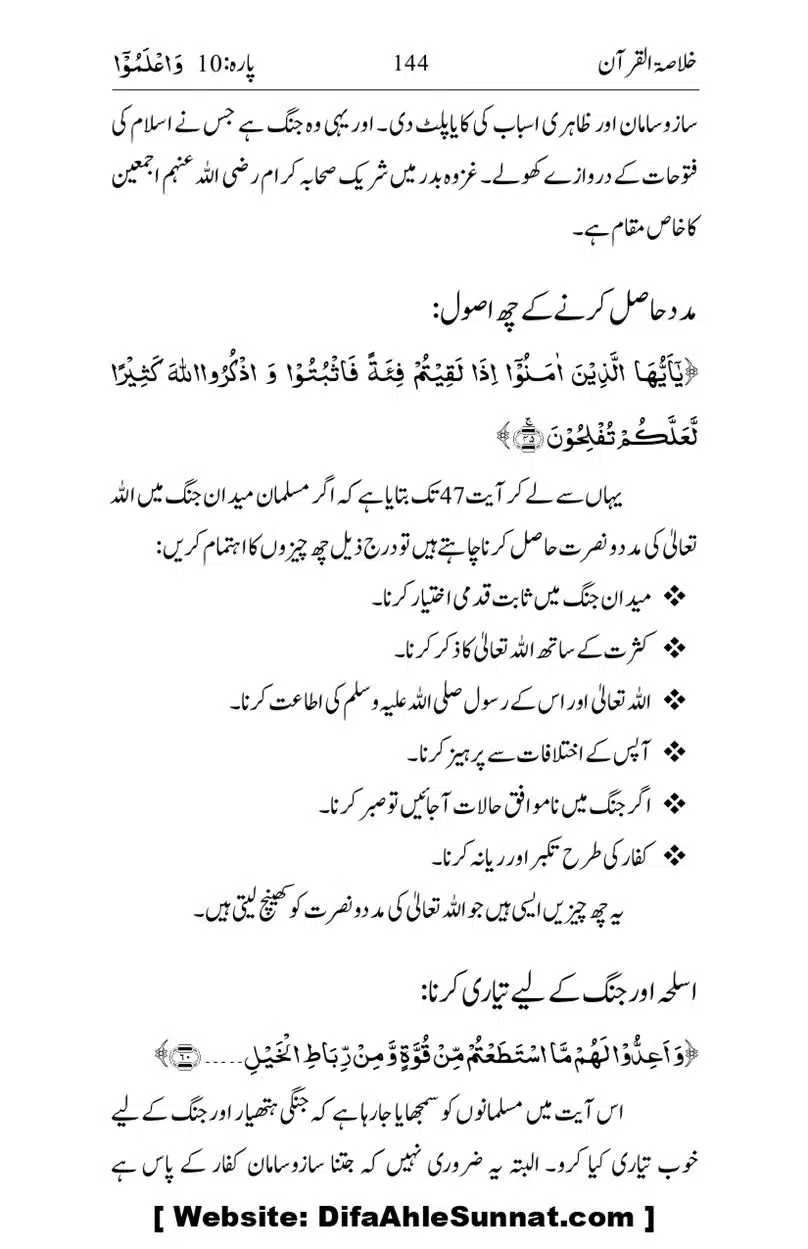 خلاصۃ القرآن 144 پارہ:10 وَاعْلَمُوْٓا
سازوسامان اور ظاہری اسباب کی کایا پلٹ دی۔ اور یہی وہ جنگ ہے جس نے اسلام کی
فتوحات کے دروازے کھولے۔ غزوہ بدر میں شریک صحابہ کرام رضی اللہ عنہم اجمعین
کا خاص مقام ہے۔
مدد حاصل کرنے کے چھ اصول:
﴿يٰٓاَيُّهَا الَّذِيْنَ اٰمَنُوْٓا اِذَا لَقِيْتُمْ فِئَةً فَاثْبُتُوْا وَ اذْكُرُوا اللّٰهَ كَثِيْرًا
لَّعَلَّكُمْ تُفْلِحُوْنَ ۝۴۵﴾
یہاں سے لے کر آیت 47 تک بتایا ہے کہ اگر مسلمان میدان جنگ میں اللہ
تعالیٰ کی مدد و نصرت حاصل کرنا چاہتے ہیں تو درج ذیل چھ چیزوں کا اہتمام کریں:
❖ میدان جنگ میں ثابت قدمی اختیار کرنا۔
❖ کثرت کے ساتھ اللہ تعالیٰ کا ذکر کرنا۔
❖ اللہ تعالیٰ اور اس کے رسول صلی اللہ علیہ وسلم کی اطاعت کرنا۔
❖ آپس کے اختلافات سے پرہیز کرنا۔
❖ اگر جنگ میں ناموافق حالات آجائیں تو صبر کرنا۔
❖ کفار کی طرح تکبر اور ریا نہ کرنا۔
یہ چھ چیزیں ایسی ہیں جو اللہ تعالیٰ کی مدد و نصرت کو کھینچ لیتی ہیں۔
اسلحہ اور جنگ کے لیے تیاری کرنا:
﴿وَ اَعِدُّوْا لَهُمْ مَّا اسْتَطَعْتُمْ مِّنْ قُوَّةٍ وَّ مِنْ رِّبَاطِ الْخَيْلِ ..... ۝۶۰﴾
اس آیت میں مسلمانوں کو سمجھایا جا رہا ہے کہ جنگی ہتھیار اور جنگ کے لیے
خوب تیاری کیا کرو۔ البتہ یہ ضروری نہیں کہ جتنا سازوسامان کفار کے پاس ہے
[ Website: DifaAhleSunnat.com ]